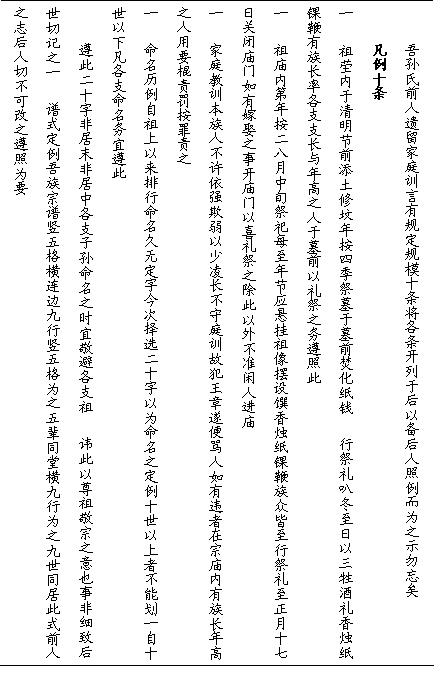 吾孙氏前人遗留家庭训言有规定规模十条将各条开列于后以备后人照例而为之示勿忘矣
凡例十条
一 祖茔内于清明节前添土修坟年按四季祭墓于墓前焚化纸钱 行祭礼叭冬至日以三牲酒礼香烛纸
锞鞭有族长率各支支长与年高之人于墓前以礼祭之务遵照此
一 祖庙内第年按二八月中旬祭祀每至年节应悬挂祖像摆设馔香烛纸锞鞭族众皆至行祭礼至正月十七
日关闭庙门如有嫁娶之事开庙门以喜礼祭之除此以外不准闲人进庙
一 家庭教训本族人不许依强欺弱以少凌长不守庭训故犯王章遂便骂人如有违者在宗庙内有族长年高
之人用要棍责罚按罪责之
一 命名历例自祖上以来排行命名久无定字今次择选二十字以为命名之定例十世以上者不能划一自十
世以下凡各支命名务宜遵此
遵此二十字非居末非居中各支子孙命名之时宜敬避各支祖 讳此以尊祖敬宗之意也事非细致后
世切记之一 谱式定例吾族宗谱竖五格横连边九行竖五格为之五辈同堂横九行为之九世同居此式前人
之志后人切不可改之遵照为要